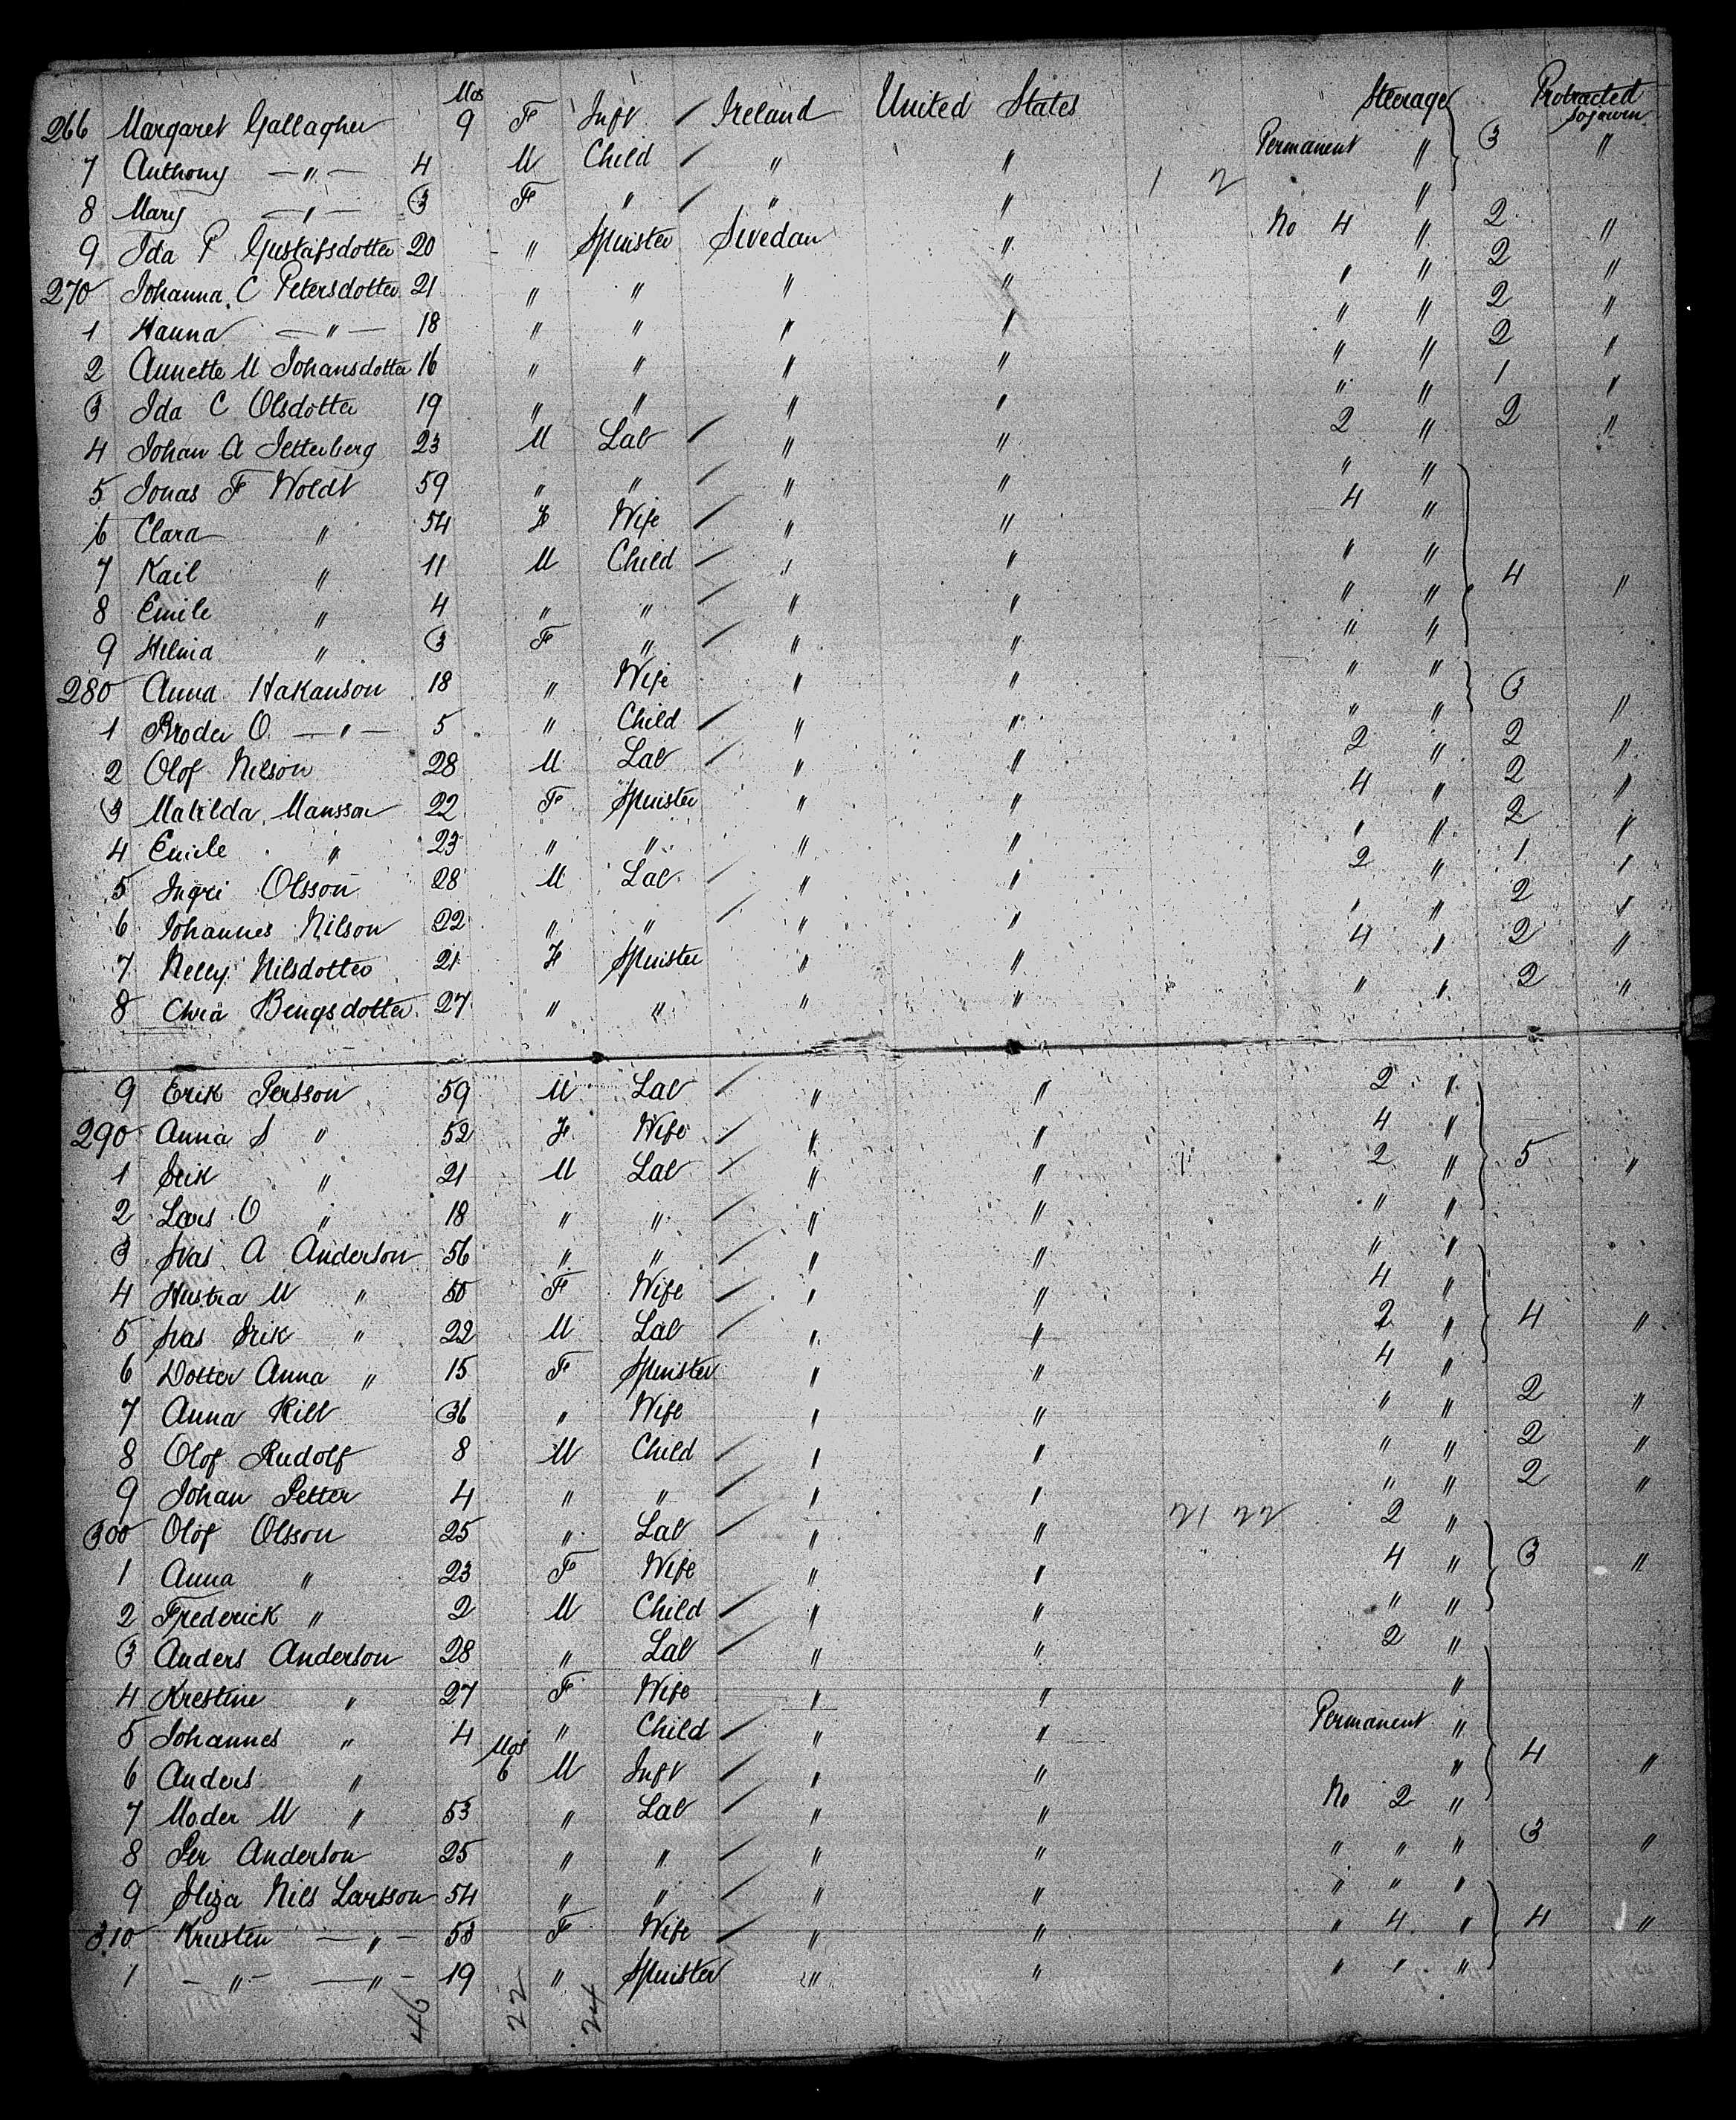 Mos
266 Margaret Gallagher 9 F Inft / Ireland United States Steerage Protracted sojourn
7 Anthony — " — 4 M Child / " " Permanent " 3 "
8 Mary — " — 3 F " / " " 1 2 "
9 Ida P Gustafsdotter 20 " Spinster Swedan " No 4 " 2 "
270 Johanna C Petersdotter 21 " " " " " " 2 "
1 Hanna — " — 18 " " " " " " 2 "
2 Annette M Johansdotter 16 " " " " " " 2 "
3 Ida C Olsdotter 19 " " " " " " 1 "
4 Johan A Setterberg 23 M Lab / " " 2 " 2 "
5 Jonas F Woldt 59 " " / " " " "
6 Clara " 54 F Wife / " " 4 "
7 Kail " 11 M Child / " " " " 4 "
8 Emile " 4 " " / " " " "
9 Helma " 3 F " / " " " "
280 Anna Hakanson 18 " Wife " " " " 3 "
1 Broder O. — " — 5 " Child / " " " "
2 Olof Nilson 28 M Lab / " " 2 " 2 "
3 Matilda Mansson 22 F Spinster " " 4 " 2 "
4 Emile " 23 " " " " " " 2 "
5 Ingri Olsson 28 M Lab / " " 2 " 1 "
6 Johannes Nilson 22 " " / " " " " 2 "
7 Nelly Nilsdotter 21 F Spinster " " 4 " 2 "
8 Bengsdotter 27 " " " " " " 2 "
9 Erik Persson 59 M Lab / " " 2 "
290 Anna S " 52 F Wife / " " 4 "
1 Erik " 21 M Lab / " " 2 " 5 "
2 Lars O " 18 " " / " " " "
3 A Anderson 56 " " / " " " "
4 Hustra M " 50 F Wife / " " 4 "
5 Erik " 22 M Lab / " " 2 " 4 "
6 Dotter Anna " 15 F Spinster " " 4 "
7 Anna Kill 36 " Wife " " " " 2 "
8 Olof Rudolf 8 M Child / " " " " 2 "
9 Johan Petter 4 " " / " " " " 2 "
300 Olof Olsson 25 " Lab / " " 21 22 2 "
1 Anna " 23 F Wife " " 4 " 3 "
2 Frederick " 2 M Child / " " " "
3 Anders Anderson 28 " Lab / " " 2 "
4 Krestine " 27 F Wife " " "
5 Johannes " 4 " Child / " " Permanent "
Mos
6 Anders " 6 M Inft / " " " 4 "
7 Moder M " 53 " Lab / " " No 2 "
8 Per Anderson 25 " " / " " " " " 3 "
9 Nils Larsson 54 " " / " " " " "
310 Kristen — " — 53 F Wife / " " " 4 " 4 "
1 — " — — " — 19 " Spinster " " " " "
46 22 24